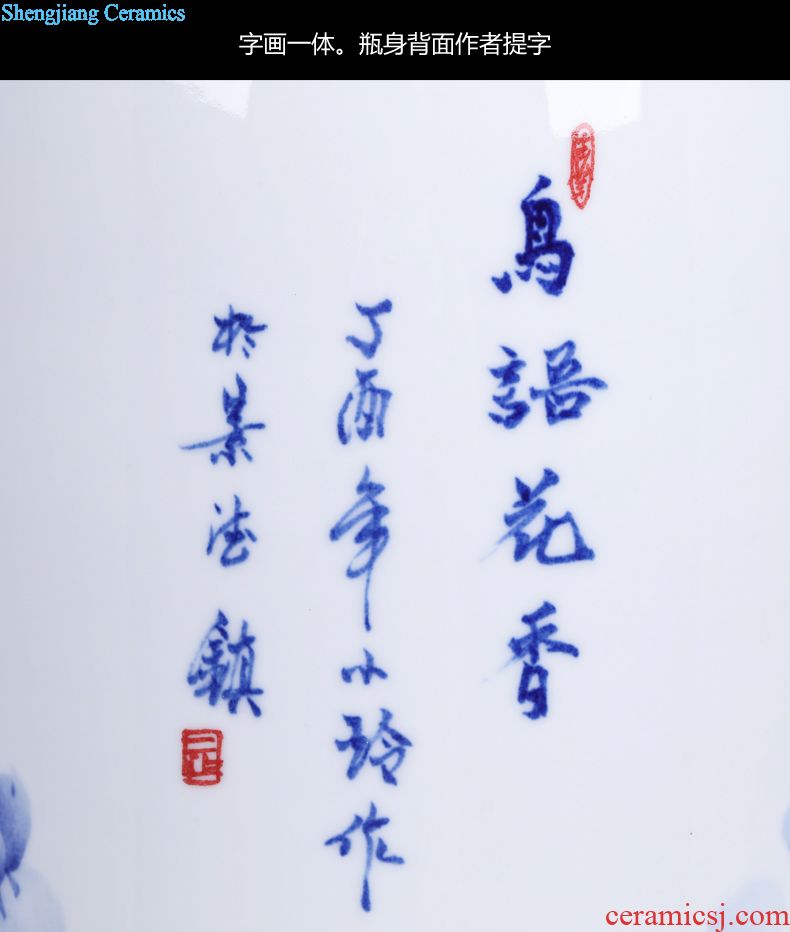 Shengjiang Ceramics
字画一体。瓶身背面作者提字
鳥語花香
丁酉年小玲作
於景德鎮
ceramicsj.com